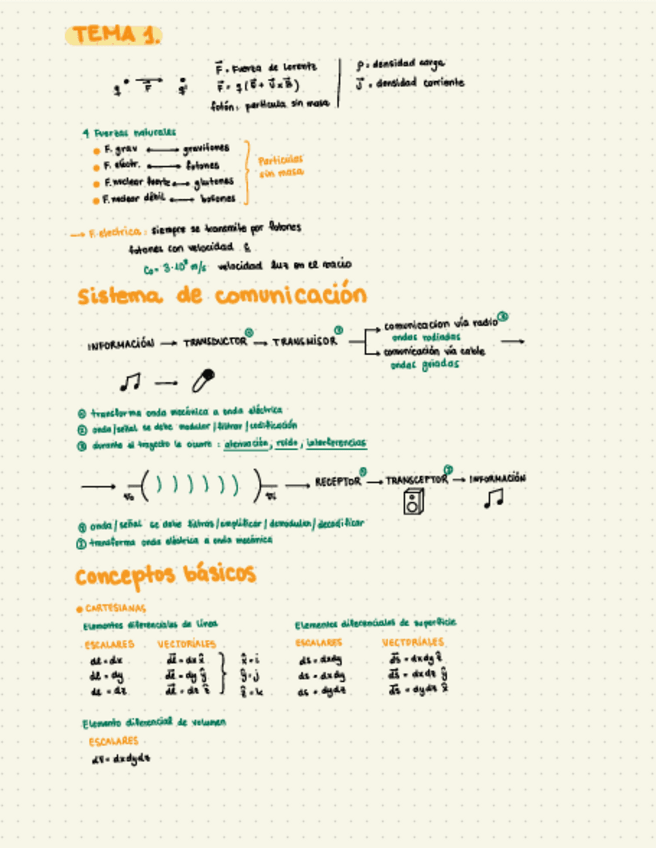 TEMA 1.
q → F q'
F = Fuerza de Lorentz
F = q(E + v x B)
fotón: partícula sin masa
ρ = densidad carga
J = densidad corriente
4 Fuerzas naturales
F. grav ↔ gravitones
F. eléctr. ↔ fotones
F. nuclear fuerte ↔ glutones
F. nuclear débil ↔ bosones
Partículas
sin masa
→ F. electrica: siempre se transmite por fotones
fotones con velocidad c
C₀ = 3·10⁸ m/s velocidad luz en el vacio
Sistema de comunicación
INFORMACIÓN → TRANSDUCTOR ① → TRANSMISOR ②
comunicacion vía radio ③
ondas radiadas
comunicación vía cable
ondas guiadas
① transforma onda mecánica a onda eléctrica
② onda/señal se debe modular/filtrar/codificación
③ durante el trayecto le ocurre: atenuación, ruido, interferencias
→ RECEPTOR ④ → TRANSCEPTOR ⑤ → INFORMACIÓN
④ onda/señal se debe filtros/amplificar/demodular/decodificar
⑤ transforma onda eléctrica a onda mecánica
Conceptos básicos
CARTESIANAS
Elementos diferenciales de línea
ESCALARES VECTORIALES
dl = dx dl = dx x̂ x̂ = i
dl = dy dl = dy ŷ ŷ = j
dl = dz dl = dz ẑ ẑ = k
Elementos diferenciales de superficie
ESCALARES VECTORIALES
ds = dxdy ds = dxdy ẑ
ds = dxdy ds = dxdz ŷ
ds = dydz ds = dydz x̂
Elemento diferencial de volumen
ESCALARES
dV = dxdydz